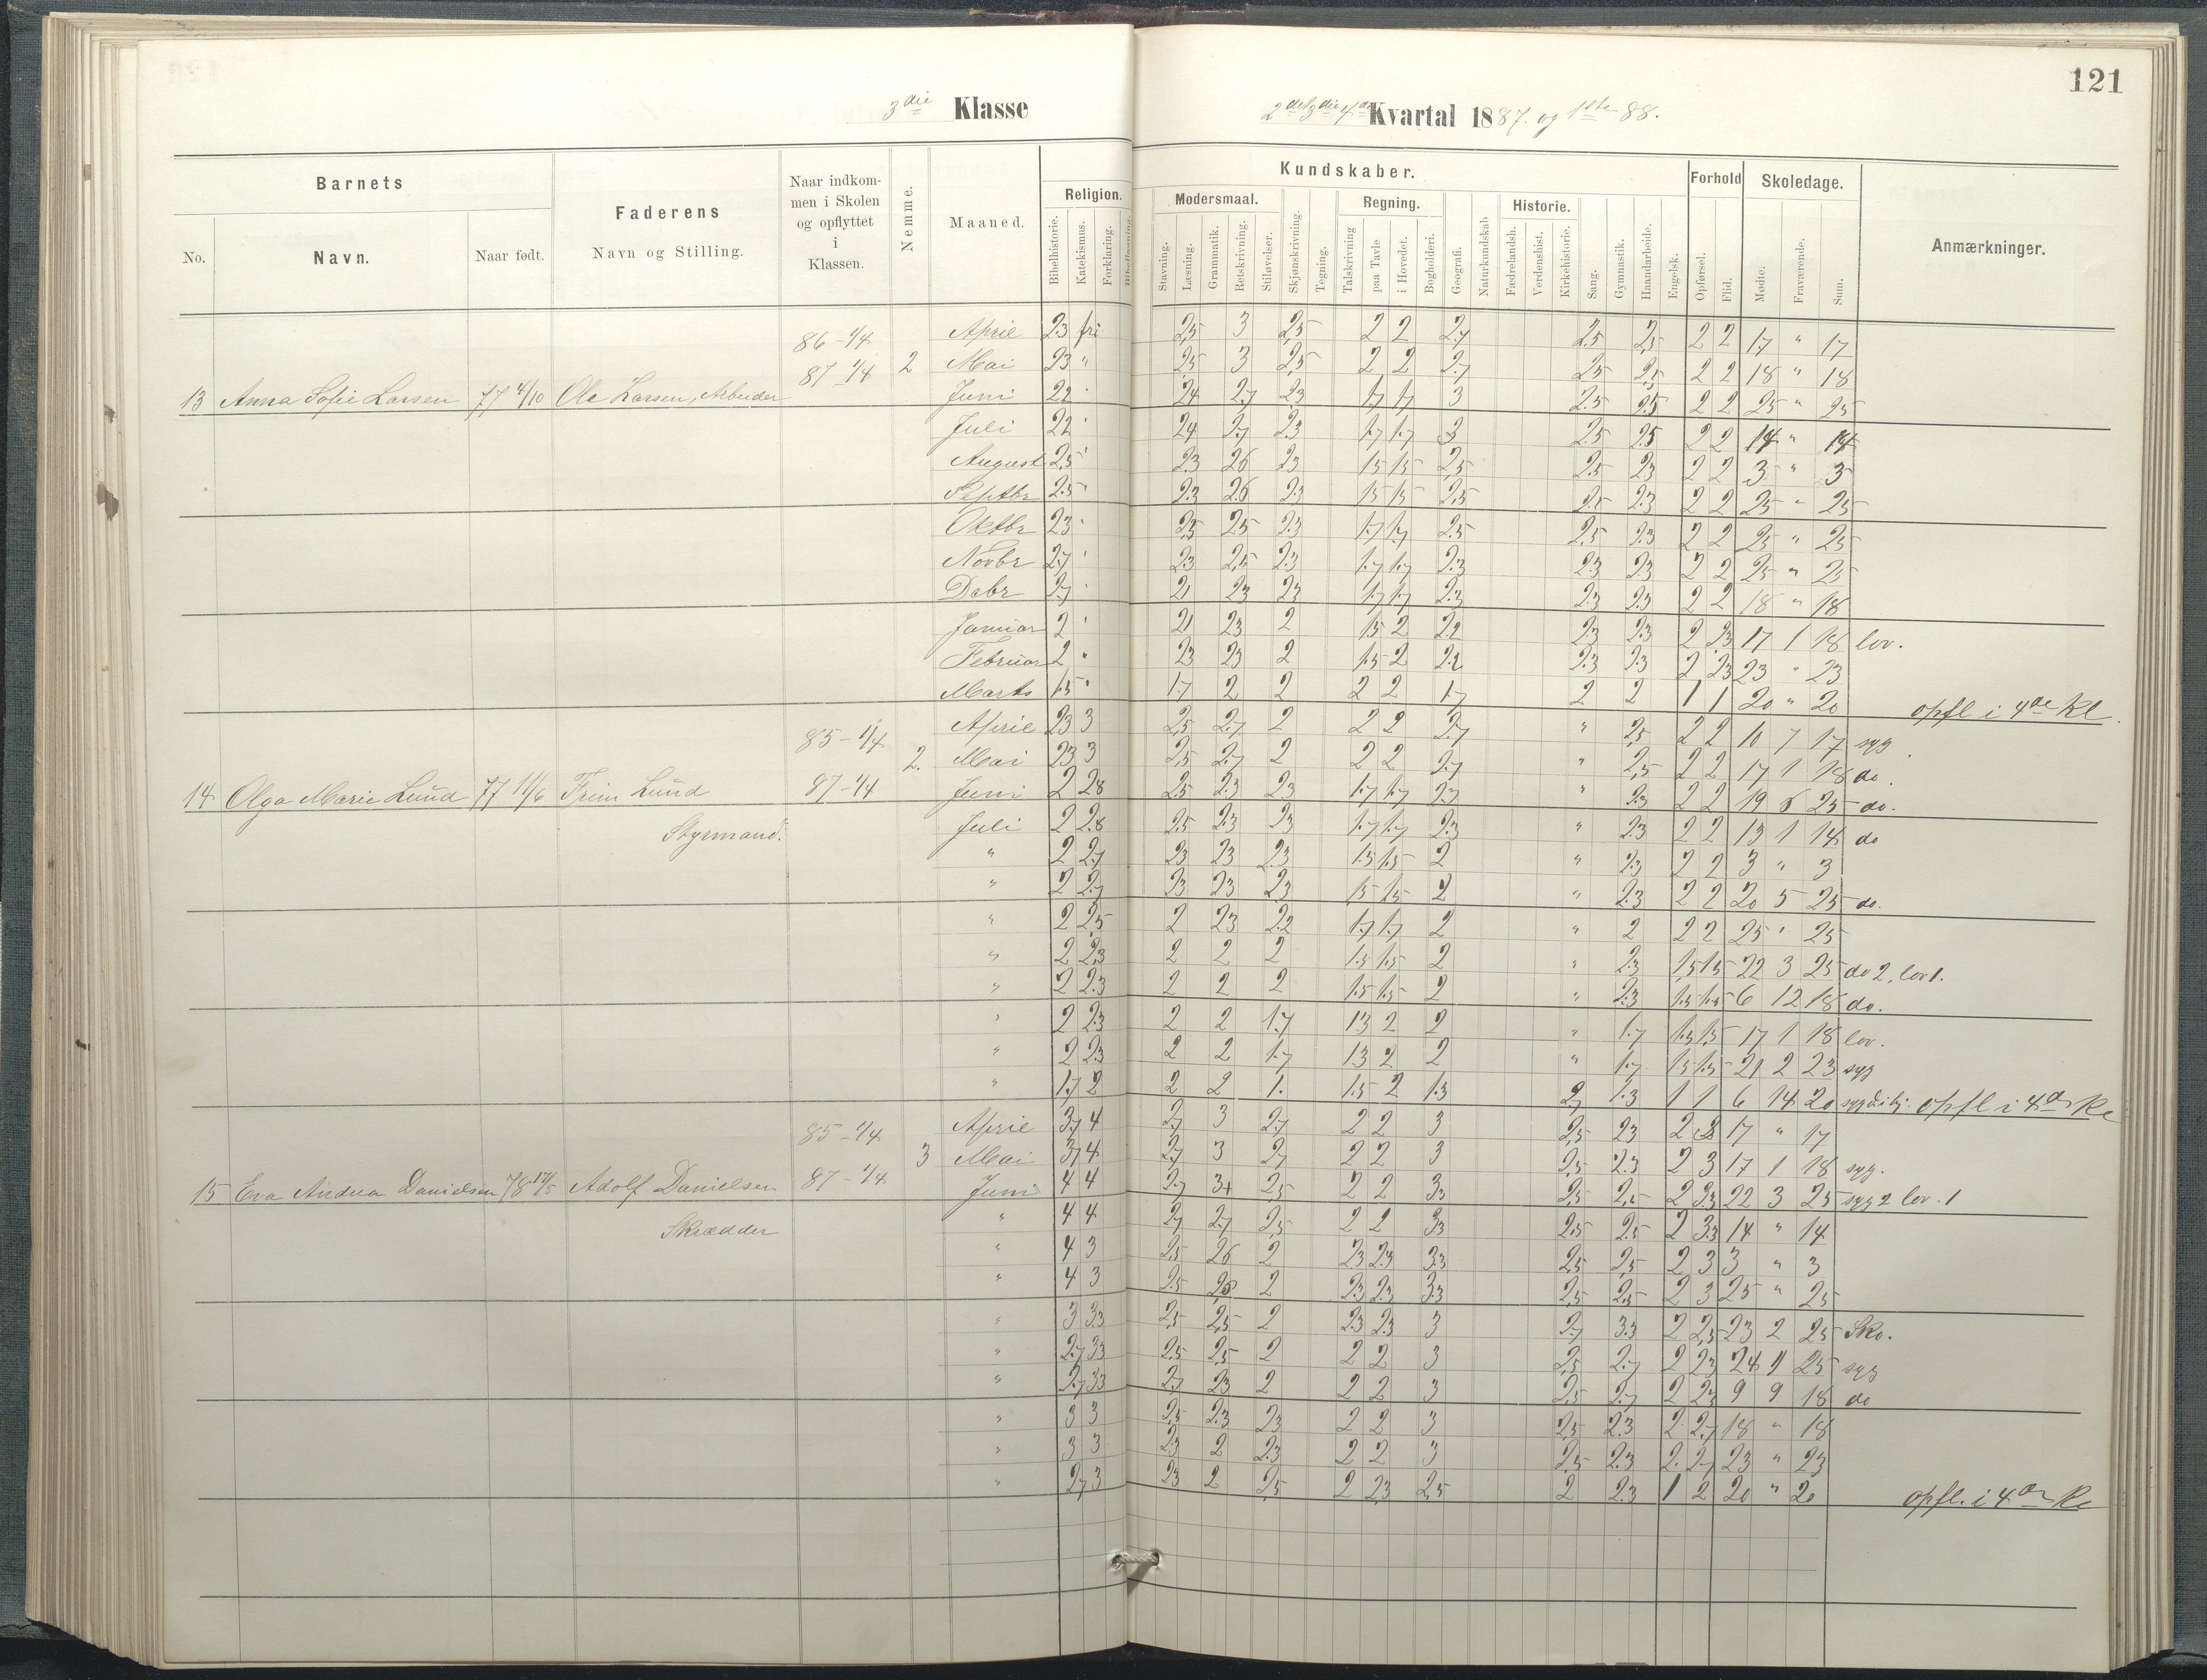 121
3die Klasse
2det 3die 4de Kvartal 1887. og 1ste 88.
Barnets
Faderens
Naar indkom-
men i Skolen
og opflyttet
i
Klassen.
Nemme.
Maaned.
Kundskaber.
Forhold
Skoledage.
Anmærkninger.
Religion.
Modersmaal.
Skjønskrivning.
Tegning.
Regning.
Geografi.
Naturkundskab
Historie.
Sang.
Gymnastik.
Haandarbeide.
Engelsk.
No.
Navn.
Naar født.
Navn og Stilling.
Bibelhistorie.
Katekismus.
Forklaring.
Bibellæsning.
Stavning.
Læsning.
Grammatik.
Retskrivning.
Stiløvelser.
Talskrivning
paa Tavle
i Hovedet.
Bogholderi.
Fædrelandsh.
Verdenshist.
Kirkehistorie.
Opførsel.
Flid.
Mødte.
Fraværende.
Sum.
86-1/4 April 23 fri 2,5 3 2,5 2 2 2,7 2.5 2,5 2 2 17 " 17
87-1/4 2 Mai 23 " 25 3 2,5 2 2 2,7 25 2,5 2 2 18 " 18
13 Anna Sofie Larsen 77 4/10 Ole Larsen, Arbeider Juni 22 24 2,7 23 1,7 1,7 3 2.5 2.5 2 2 25 " 25
Juli 22 24 2,7 2.3 1.7 1.7 3 2.5 2.5 2 2 14 " 14
August 2,5 2.3 26 23 15 15 2,5 2.5 23 2 2 3 " 3
Septbr 2.5 2.3 2.6 23 15 15 2,5 2.5 2.3 2 2 25 " 25
Oktbr 23 2,5 25 2.3 1.7 1.7 2.5 2.5 2.3 2 2 25 " 25
Novbr 2.7 2.3 2,5 2.3 1.7 1.7 2.3 2.3 2.3 2 2 25 " 25
Debr 2.7 21 23 23 1.7 1.7 2.3 2.3 2.3 2 2 18 " 18
Januar 2 21 23 2 1.5 2 2.2 2.3 2.3 2 23 17 1 18 lov.
Februar 2 " 23 23 2 1.5 2 2.2 2.3 2.3 2 23 23 " 23
Marts 1.5 " 1.7 2 2 2 2 1.7 2 2 1 1 20 " 20 opfl i 4de Kl.
85-1/4 April 23 3 2,5 2.7 2 2 2 2.7 " 2,5 2 2 10 7 17 syg
2. Mai 23 3 2,5 2.7 2 2 2 2.7 " 2,5 2 2 17 1 18 do.
14 Olga Marie Lund 77 11/6 Lund 87-1/4 Juni 2 28 2.5 2.3 23 1.7 1.7 23 " 2.3 2 2 19 6 25 do.
Styrmand. Juli 2 2.8 2.5 2.3 23 1.7 1.7 2.3 " 2.3 2 2 13 1 14 do
" 2 2.7 23 23 2.3 1.5 1.5 2 " 2.3 2 2 3 " 3
" 2 2.7 23 23 2.3 1.5 1.5 2 " 2.3 2 2 20 5 25 do.
" 2 2.5 2 23 2.2 1.7 1.7 2 " 2 2 2 25 " 25
" 2 2.3 2 2 2 1.5 1.5 2 " 2.3 1.5 1.5 22 3 25 do 2, lov 1.
" 2 2.3 2 2 2 1.5 1.5 2 " 2.3 1.5 1.5 6 12 18 do.
" 2 2.3 2 2 1.7 13 2 2 " 1.7 1.5 1.5 17 1 18 lov.
" 2 2.3 2 2 1.7 13 2 2 " 1.7 1.5 1.5 21 2 23 syg
" 1.7 2 2 2 1. 1.5 2 1.3 2,7 1.3 1 1 6 14 20 opfl i 4d Kl
85-1/4 April 3.7 4 2,7 3 2,7 2 2 3 2,5 23 2 3 17 " 17
3 Mai 3.7 4 2,7 3 2,7 2 2 3 2,5 2.3 2 3 17 1 18 syg.
15 Eva Andrea Danielsen 78 17/5 Adolf Danielsen 87-1/4 Juni 4 4 2.7 3+ 2,5 2 2 33 2,5 2,5 2 3.3 22 3 25 syg 2 lov. 1
Skrædder " 4 4 2,7 2,7 2,5 2 2 33 2,5 2.5 2 3.3 14 " 14
" 4 3 2,5 26 2 2.3 2.3 3.3 2,5 2,5 2 3 3 " 3
" 4 3 2.5 2,6 2 2.3 2.3 3.3 2,5 2,5 2 3 25 " 25
" 3 3.3 2,5 2,5 2 2.3 2.3 3 2.7 3.3 2 2,5 23 2 25 Sko.
" 2.7 33 2,5 2,5 2 2 2 3 2,5 2.7 2 23 24 1 25 syg
" 2.7 33 2.7 23 2 2 2 3 2,5 2.7 2 23 9 9 18 do
" 3 3 2,5 2.3 23 2 2 3 2,5 2.3 2 2.7 18 " 18
" 3 3 23 2 2.3 2 2 3 2,5 2.3 2 2.7 23 " 23
" 2,7 3 23 2 2,5 2 2,3 2,5 2 2.3 1 2 20 " 20 opfl. i 4de Kl